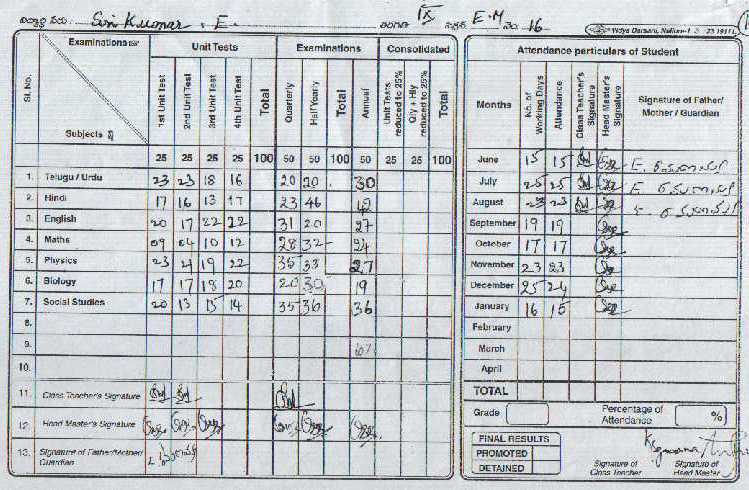 విద్యార్థి పేరు Siri Kumar . E . తరగతి IX సెక్షన్ E.M నెం. 16
Vidya Darsani, Nellore-1
Examinations Unit Tests Examinations Consolidated
Sl. No. Subjects 1st Unit Test 2nd Unit Test 3rd Unit Test 4th Unit Test Total Quarterly Half Yearly Total Annual Unit Tests reduced to 25% Qly + Hly reduced to 25% Total
25 25 25 25 100 50 50 100 50 25 25 100
1. Telugu / Urdu 23 23 18 16 20 20 30
2. Hindi 17 16 13 17 23 46
3. English 20 17 22 22 31 20 27
4. Maths 09 04 10 12 28 32 24
5. Physics 23 19 22 35 33 27
6. Biology 17 17 18 20 20 30 19
7. Social Studies 20 13 15 14 35 36 36
8.
9. 67
10.
11. Class Teacher's Signature
12. Head Master's Signature
13. Signature of Father/Mother/ Guardian
Attendance particulars of Student
Months No. of Working Days Attendance Class Teacher's Signature Head Master's Signature Signature of Father/ Mother / Guardian
June 15 15
July 25 25
August 23 23
September 19 19
October 17 17
November 23 23
December 25 24
January 16 15
February
March
April
TOTAL
Grade Percentage of Attendance %
FINAL RESULTS
PROMOTED
DETAINED
Signature of Class Teacher Signature of Head Master